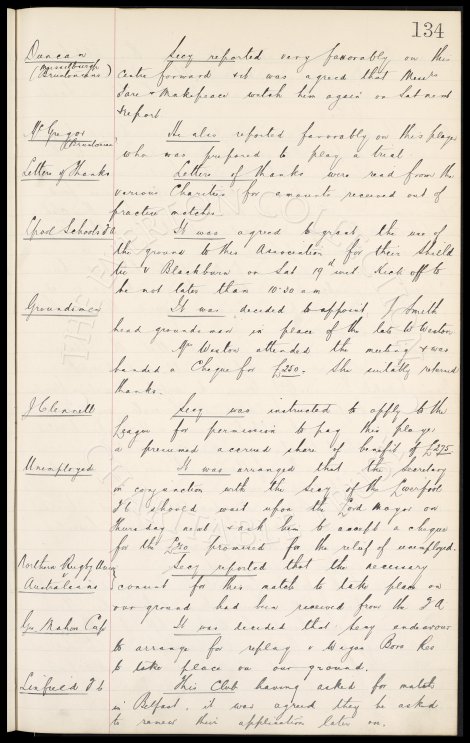 134
Duncan Secy reported very favorably on this
(Musselburgh Bruntonians) Centre forward & it was agreed that Messrs
& Makepeace watch him again on Sat next
& report
McGregor He also reported favorably on this player
who was prepared to play a trial.
Letters of Thanks Letters of thanks were read from the
various Charities for amounts received out of
practice matches.
Lpool Schools FA It was agreed to grant the use of
the ground to this Association for their Shield
tie v Blackburn on Sat 19th inst. Kick off to
be not later than 10.30 am
Groundsman It was decided to appoint J Smith
head groundsman in place of the late W Weston
Mrs Weston attended the meeting & was
handed a Cheque for £250. She suitably returned
thanks.
J Clennell Secy was instructed to apply to the
League for permission to pay this player
a presumed accrued share of benefit of £275
Unemployed It was arranged that the Secretary
in conjunction with the Secy of the Liverpool
FC should wait upon the Lord Mayor on
Thursday next & ask him to accept a cheque
for the £250 promised for the relief of unemployed.
Northern Rugby Union Secy reported that the necessary
v Australians consent for this match to take place on
our ground had been received from the FA
Geo Mahon Cup It was decided that Secy endeavour
to arrange for replay v Wigan Boro Res
to take place on our ground.
Linfield FC This Club having asked for match
in Belfast, it was agreed they be asked
to renew their application later on.